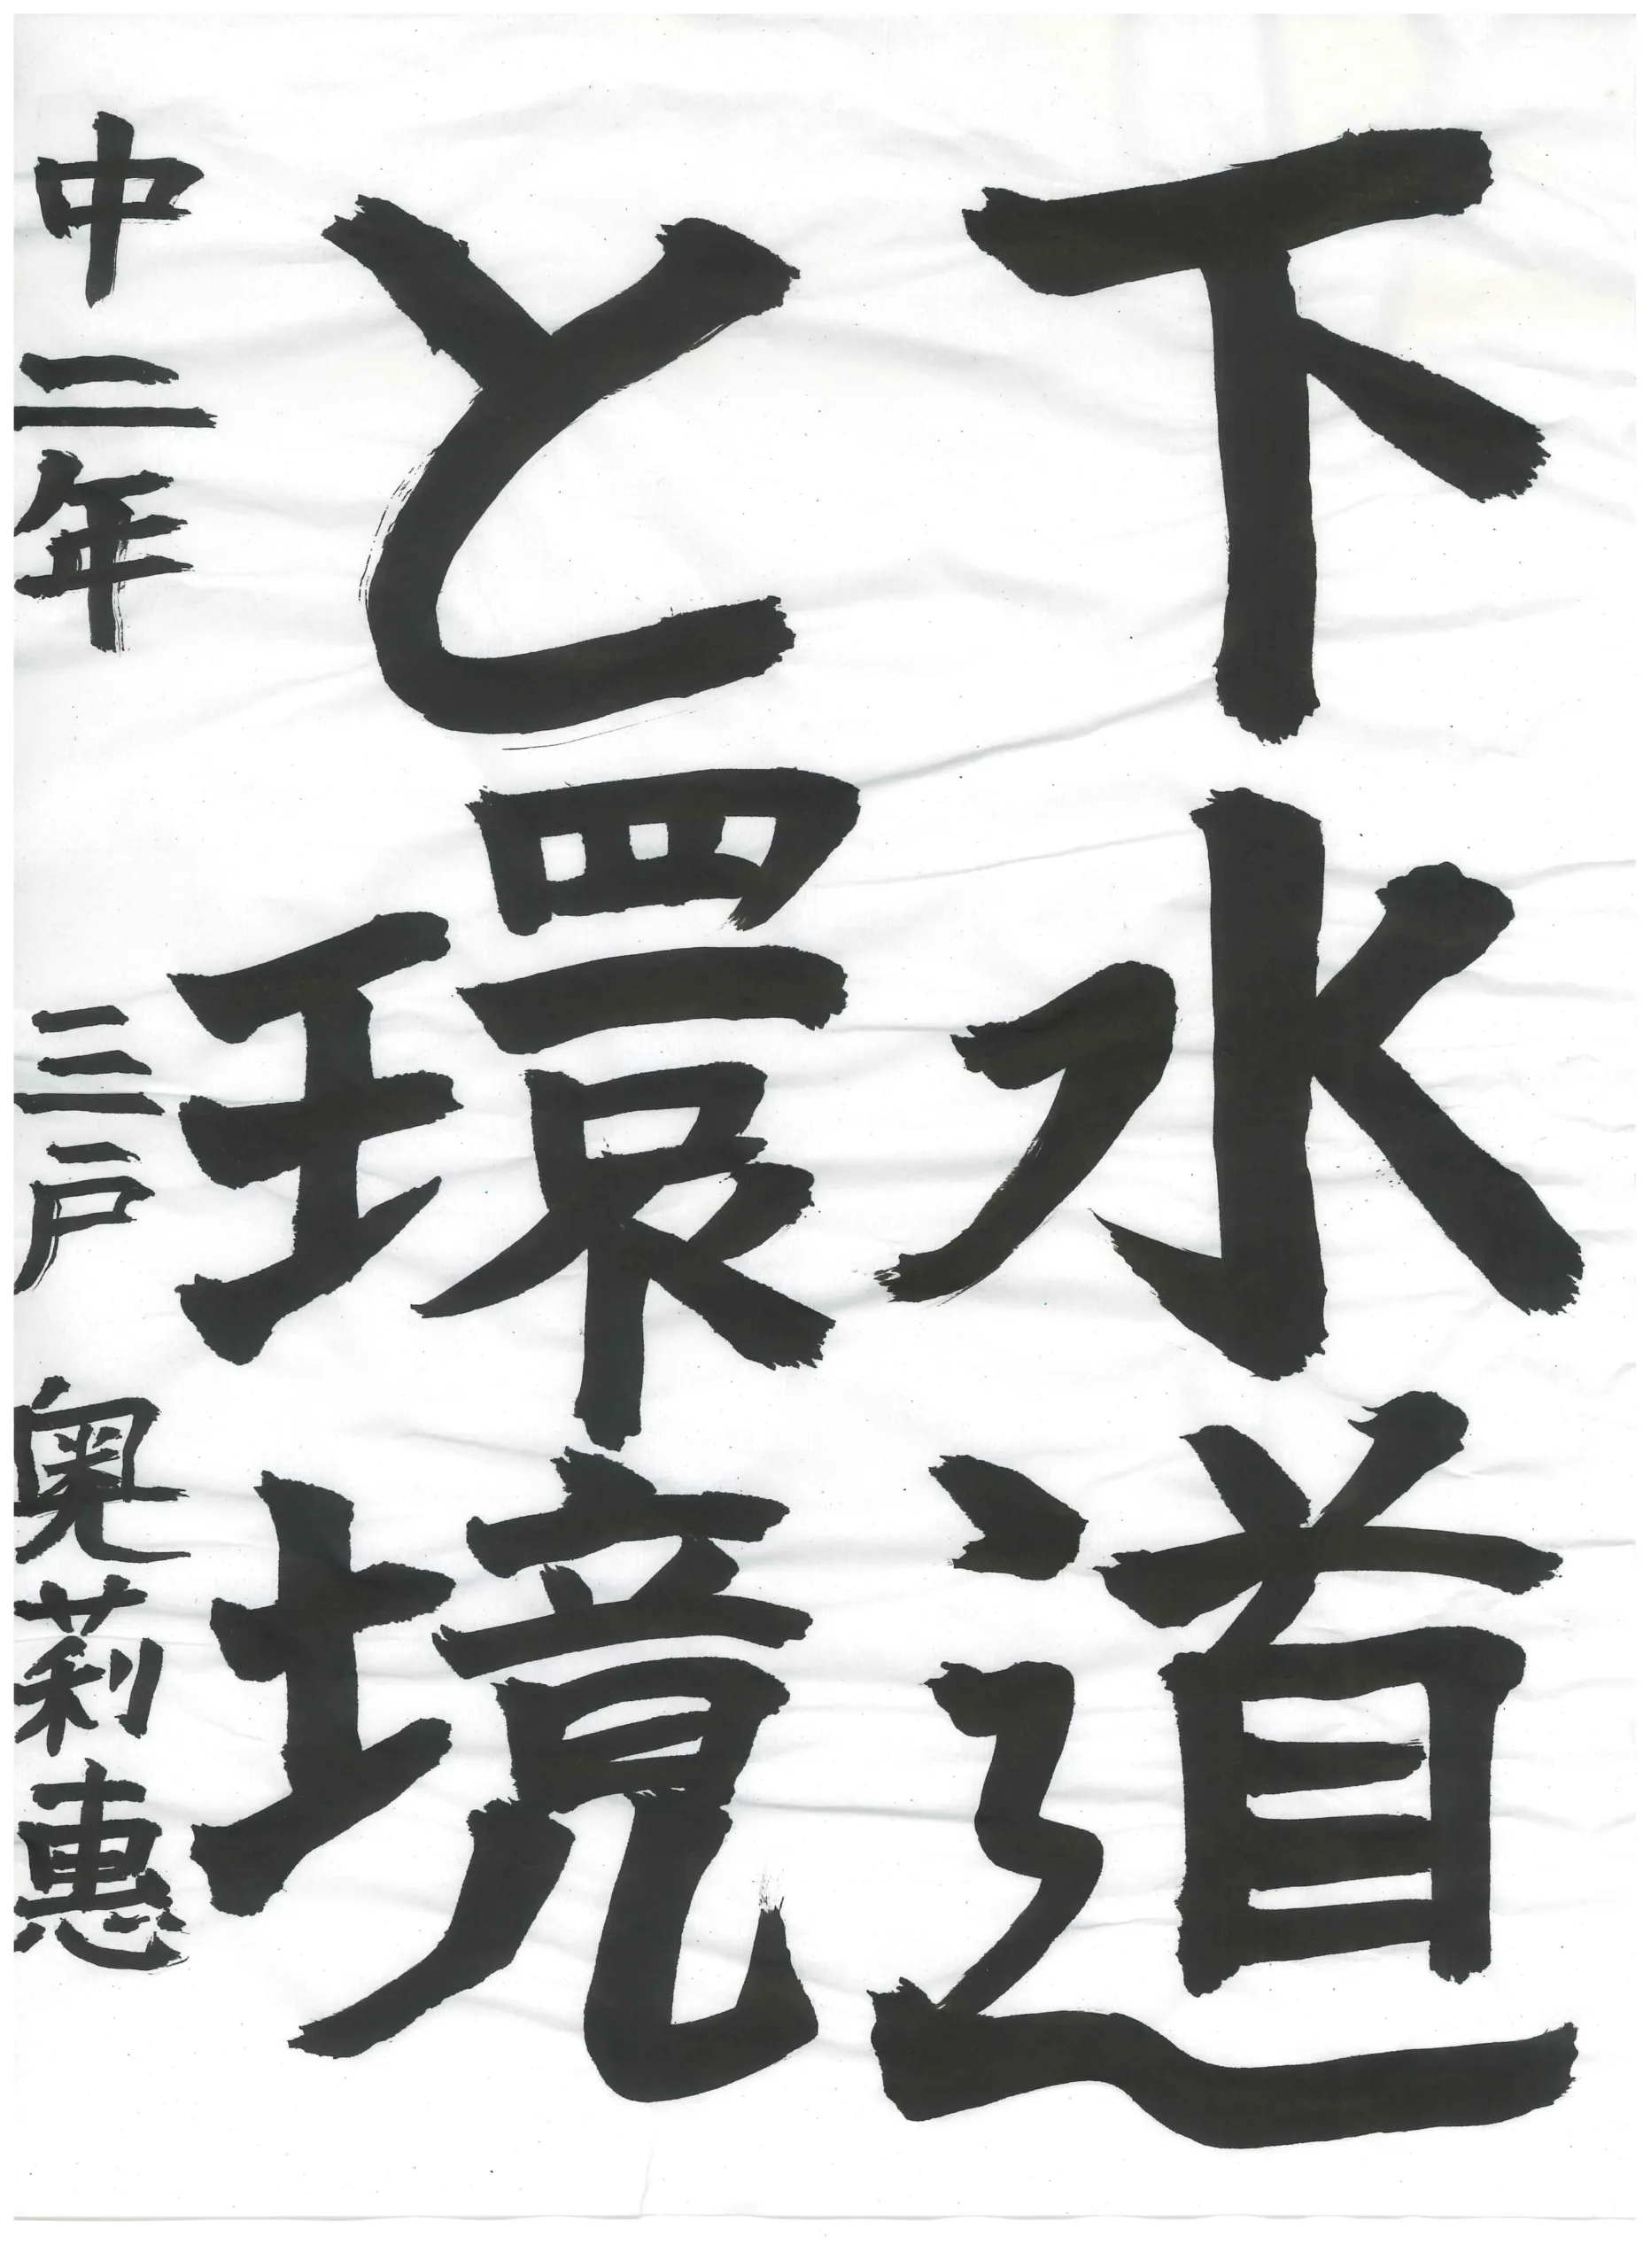 下水道
と環境
中二年 三戸 奥莉惠